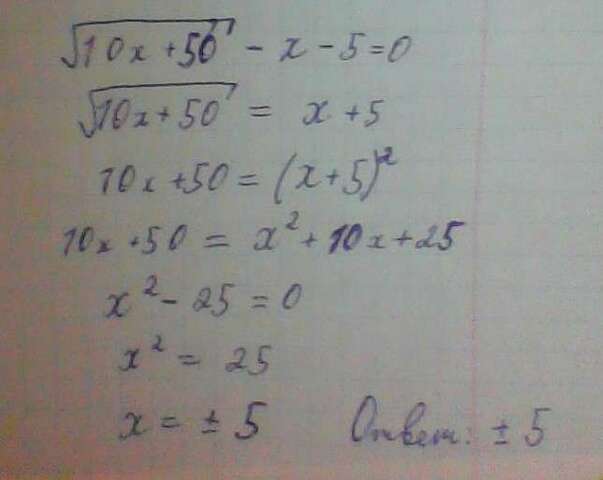 √(10x+50) - x - 5 = 0
√(10x+50) = x + 5
10x + 50 = (x+5)²
10x + 50 = x² + 10x + 25
x² - 25 = 0
x² = 25
x = ± 5 Ответ: ± 5